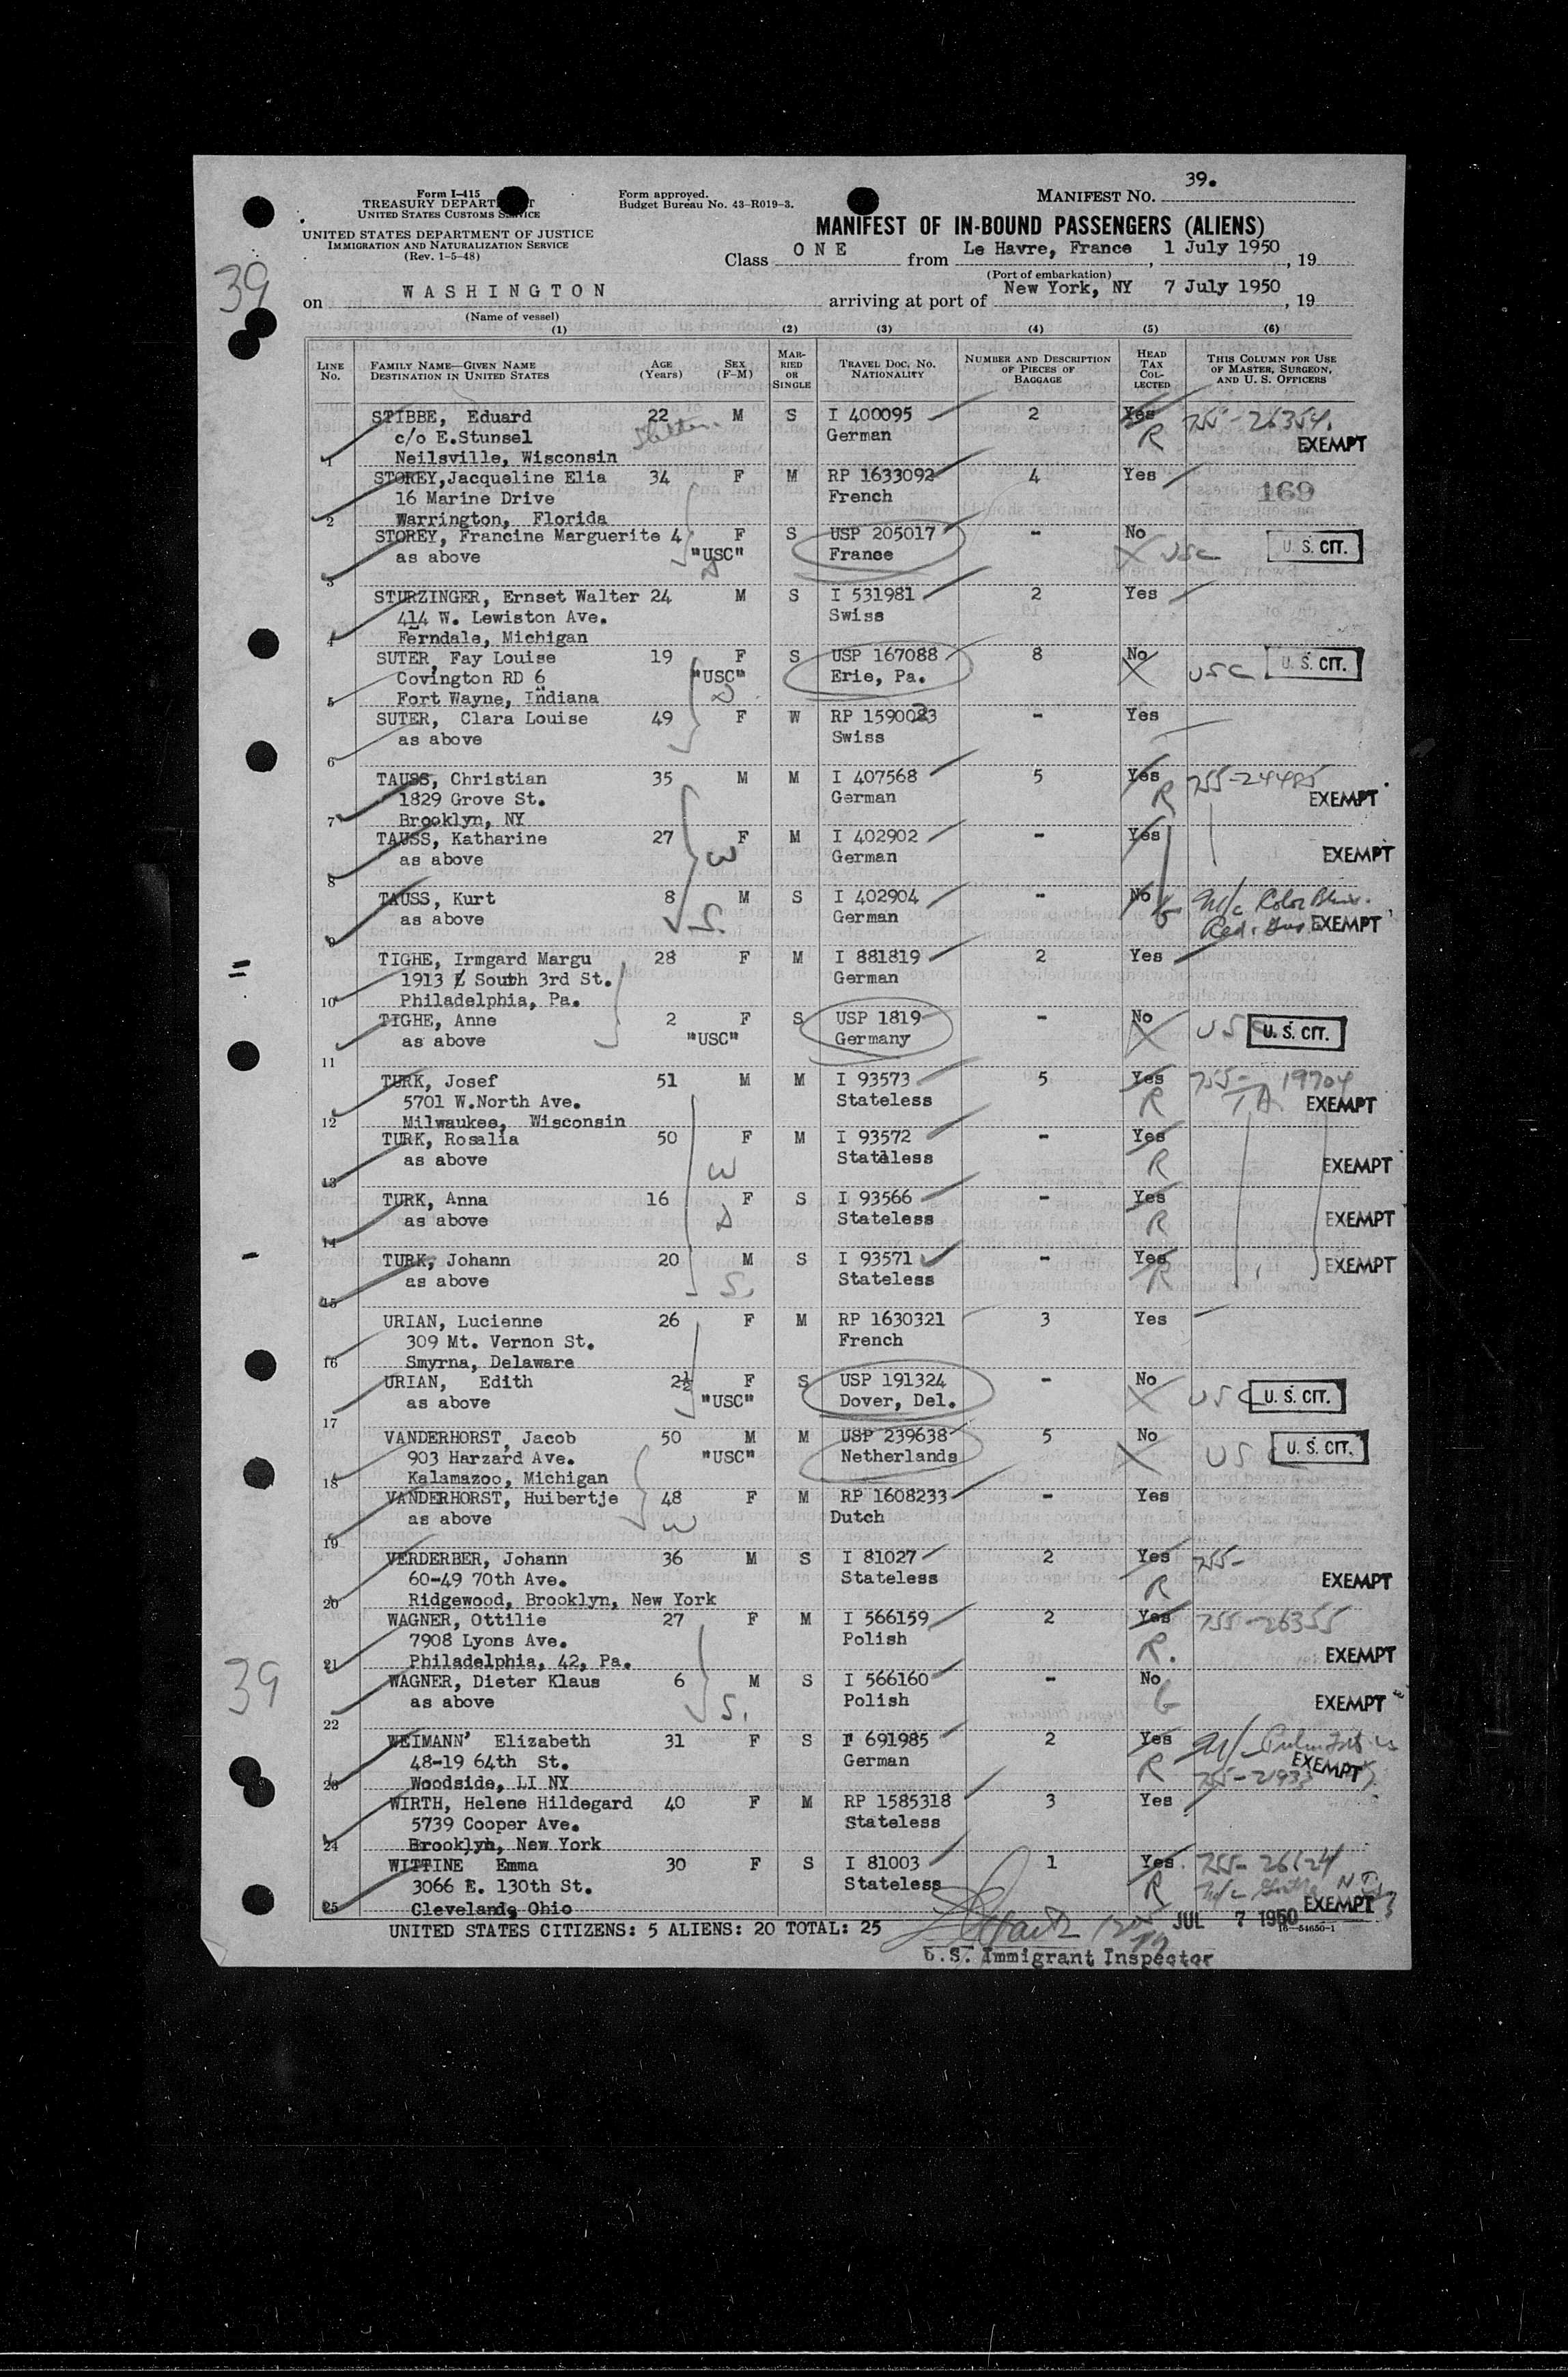 39.
Form I-415
TREASURY DEPARTMENT
UNITED STATES CUSTOMS SERVICE
Form approved.
Budget Bureau No. 43-R019-3.
MANIFEST NO.
UNITED STATES DEPARTMENT OF JUSTICE
IMMIGRATION AND NATURALIZATION SERVICE
(Rev. 1-5-48)
MANIFEST OF IN-BOUND PASSENGERS (ALIENS)
Class ONE from Le Havre, France, 1 July 1950, 19
(Port of embarkation)
39
on WASHINGTON arriving at port of New York, NY 7 July 1950, 19
(Name of vessel)
(1) (2) (3) (4) (5) (6)
LINE No. FAMILY NAME—GIVEN NAME DESTINATION IN UNITED STATES AGE (Years) SEX (F-M) MARRIED OR SINGLE TRAVEL DOC. NO. NATIONALITY NUMBER AND DESCRIPTION OF PIECES OF BAGGAGE HEAD TAX COLLECTED THIS COLUMN FOR USE OF MASTER, SURGEON, AND U. S. OFFICERS
STIBBE, Eduard 22 M S I 400095 2 Yes 755-26354
c/o E.Stunsel German R EXEMPT
1 Neilsville, Wisconsin
STOREY, Jacqueline Elia 34 F M RP 1633092 4 Yes
16 Marine Drive French 169
2 Warrington, Florida
STOREY, Francine Marguerite 4 F S USP 205017 - No
as above "USC" France USC U. S. CIT.
3
STURZINGER, Ernset Walter 24 M S I 531981 2 Yes
414 W. Lewiston Ave. Swiss
4 Ferndale, Michigan
SUTER, Fay Louise 19 F S USP 167088 8 No
Covington RD 6 "USC" Erie, Pa. USC U. S. CIT.
5 Fort Wayne, Indiana
SUTER, Clara Louise 49 F W RP 1590083 - Yes
as above Swiss
6
TAUSS, Christian 35 M M I 407568 5 Yes 755-24485
1829 Grove St. German R EXEMPT
7 Brooklyn, NY
TAUSS, Katharine 27 F M I 402902 - Yes
as above W German EXEMPT
8
TAUSS, Kurt 8 M S I 402904 - No M/c Color
as above S. German Red. EXEMPT
9
TIGHE, Irmgard Margu 28 F M I 881819 2 Yes
1913 South 3rd St. German
10 Philadelphia, Pa.
TIGHE, Anne 2 F S USP 1819 - No
as above "USC" Germany USC U. S. CIT.
11
TURK, Josef 51 M M I 93573 5 Yes 755-19704
5701 W.North Ave. Stateless R EXEMPT
12 Milwaukee, Wisconsin
TURK, Rosalia 50 F M I 93572 - Yes
as above W Stateless R EXEMPT
13
TURK, Anna 16 F S I 93566 - Yes
as above D Stateless R EXEMPT
14
TURK, Johann 20 M S I 93571 - Yes
as above S. Stateless R EXEMPT
15
URIAN, Lucienne 26 F M RP 1630321 3 Yes
309 Mt. Vernon St. French
16 Smyrna, Delaware
URIAN, Edith 2½ F S USP 191324 - No
as above "USC" Dover, Del. USC U. S. CIT.
17
VANDERHORST, Jacob 50 M M USP 239638 5 No
903 Harzard Ave. "USC" Netherlands US U. S. CIT.
18 Kalamazoo, Michigan
VANDERHORST, Huibertje 48 F M RP 1608233 - Yes
as above W Dutch
19
VERDERBER, Johann 36 M S I 81027 2 Yes 755-
60-49 70th Ave. Stateless R EXEMPT
20 Ridgewood, Brooklyn, New York
WAGNER, Ottilie 27 F M I 566159 2 Yes 755-26355
7908 Lyons Ave. Polish R. EXEMPT
21 Philadelphia, 42, Pa.
39
WAGNER, Dieter Klaus 6 M S I 566160 - No
as above S. Polish EXEMPT
22
WEIMANN' Elizabeth 31 F S I 691985 2 Yes
48-19 64th St. German R EXEMPT
23 Woodside, LI NY
WIRTH, Helene Hildegard 40 F M RP 1585318 3 Yes
5739 Cooper Ave. Stateless
24 Brooklyn, New York
WITTINE Emma 30 F S I 81003 1 Yes
3066 E. 130th St. Stateless R
25 Cleveland, Ohio EXEMPT
UNITED STATES CITIZENS: 5 ALIENS: 20 TOTAL: 25 JUL 7 1950
16-54650-1
U.S. Immigrant Inspector